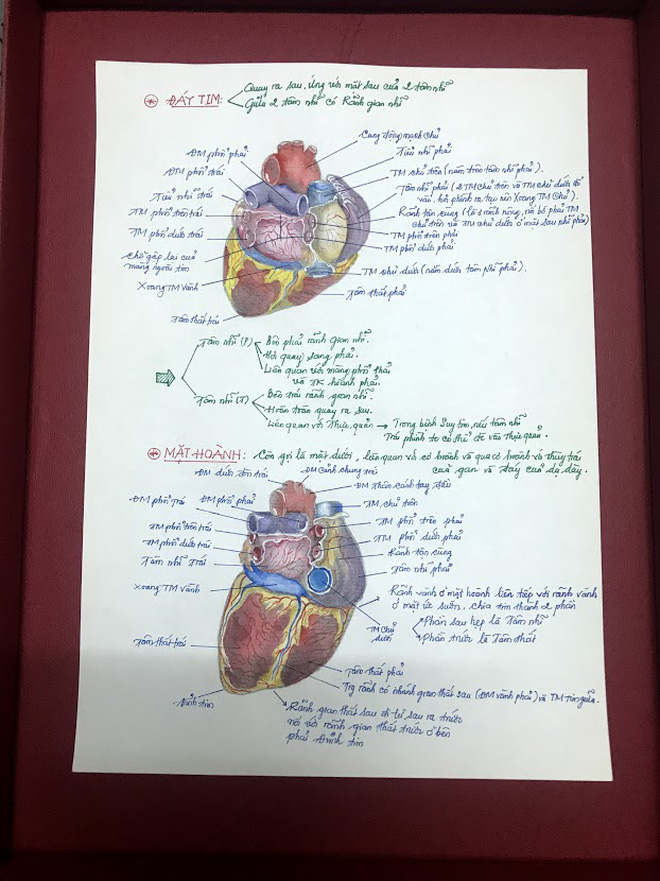 ĐÁY TIM:
Quay ra sau, ứng với mặt sau của 2 tâm nhĩ
Giữa 2 tâm nhĩ có Rãnh gian nhĩ
Cung động mạch chủ
ĐM phổi phải
Tiểu nhĩ phải
ĐM phổi trái
TM chủ trên (nằm trên tâm nhĩ phải).
Tiểu nhĩ trái
Tâm nhĩ phải (2 TM chủ trên và TM chủ dưới đổ
vào, hơi phình ra tạo nên Xoang TM Chủ).
TM phổi trên trái
Rãnh tận cùng (là 1 rãnh nông, nối bờ phải TM
chủ trên và TM chủ dưới ở mặt sau nhĩ phải)
TM phổi dưới trái
TM phổi trên phải
TM phổi dưới phải
Chỗ gấp lại của
màng ngoài tim
TM chủ dưới (nằm dưới tâm Nhĩ phải).
Xoang TM Vành
Tâm thất phải
Tâm thất trái
Tâm nhĩ (P)
Bên phải rãnh gian nhĩ.
Hơi quay sang phải.
Liên quan với màng phổi phải
và TK hoành phải.
Tâm nhĩ (T)
Bên trái rãnh gian nhĩ.
Hoàn toàn quay ra sau.
Liên quan với Thực quản → Trong bệnh Suy tim, nếu tâm nhĩ
Trái phình to có thể đè vào Thực quản.
MẶT HOÀNH:
Còn gọi là mặt dưới, liên quan với cơ hoành và qua cơ hoành với thùy trái
của gan và đáy của dạ dày.
ĐM dưới đòn trái
ĐM Cảnh chung trái
ĐM thân cánh tay đầu
ĐM phổi Trái
ĐM phổi phải
TM chủ trên
TM phổi trên trái
TM phổi trên phải
TM phổi dưới trái
TM phổi dưới phải
Tâm nhĩ Trái
Rãnh tận cùng
Tâm nhĩ phải
Xoang TM Vành
Rãnh vành ở mặt hoành liên tiếp với rãnh vành
ở mặt ức sườn, chia tim thành 2 phần
Phần sau hẹp là Tâm nhĩ
Phần trước là Tâm thất
TM Chủ
dưới
Tâm thất trái
Tâm thất phải
Trg rãnh có nhánh gian thất sau (ĐM vành phải) và TM Tim giữa.
Đỉnh tim
Rãnh gian thất sau đi từ sau ra trước
nối với rãnh gian thất trước ở bên
phải Đỉnh tim